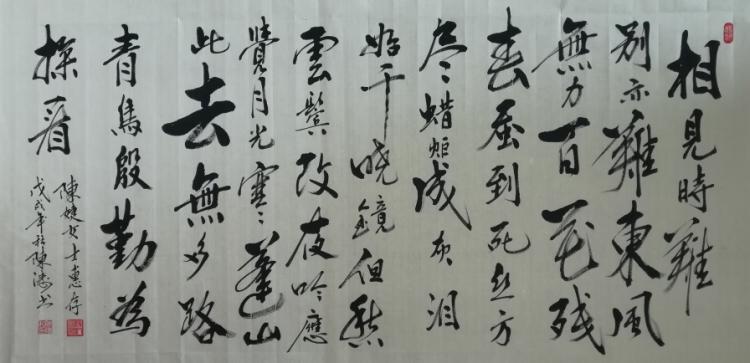 相見時難
别亦難東風
無力百花残
春蚕到死丝方
尽蜡炬成灰泪
始干晓鏡但愁
雲鬓改夜吟應
覺月光寒蓬山
此去無多路
青鳥殷勤為
探看
陳婕女士惠存
戊戌年陳书